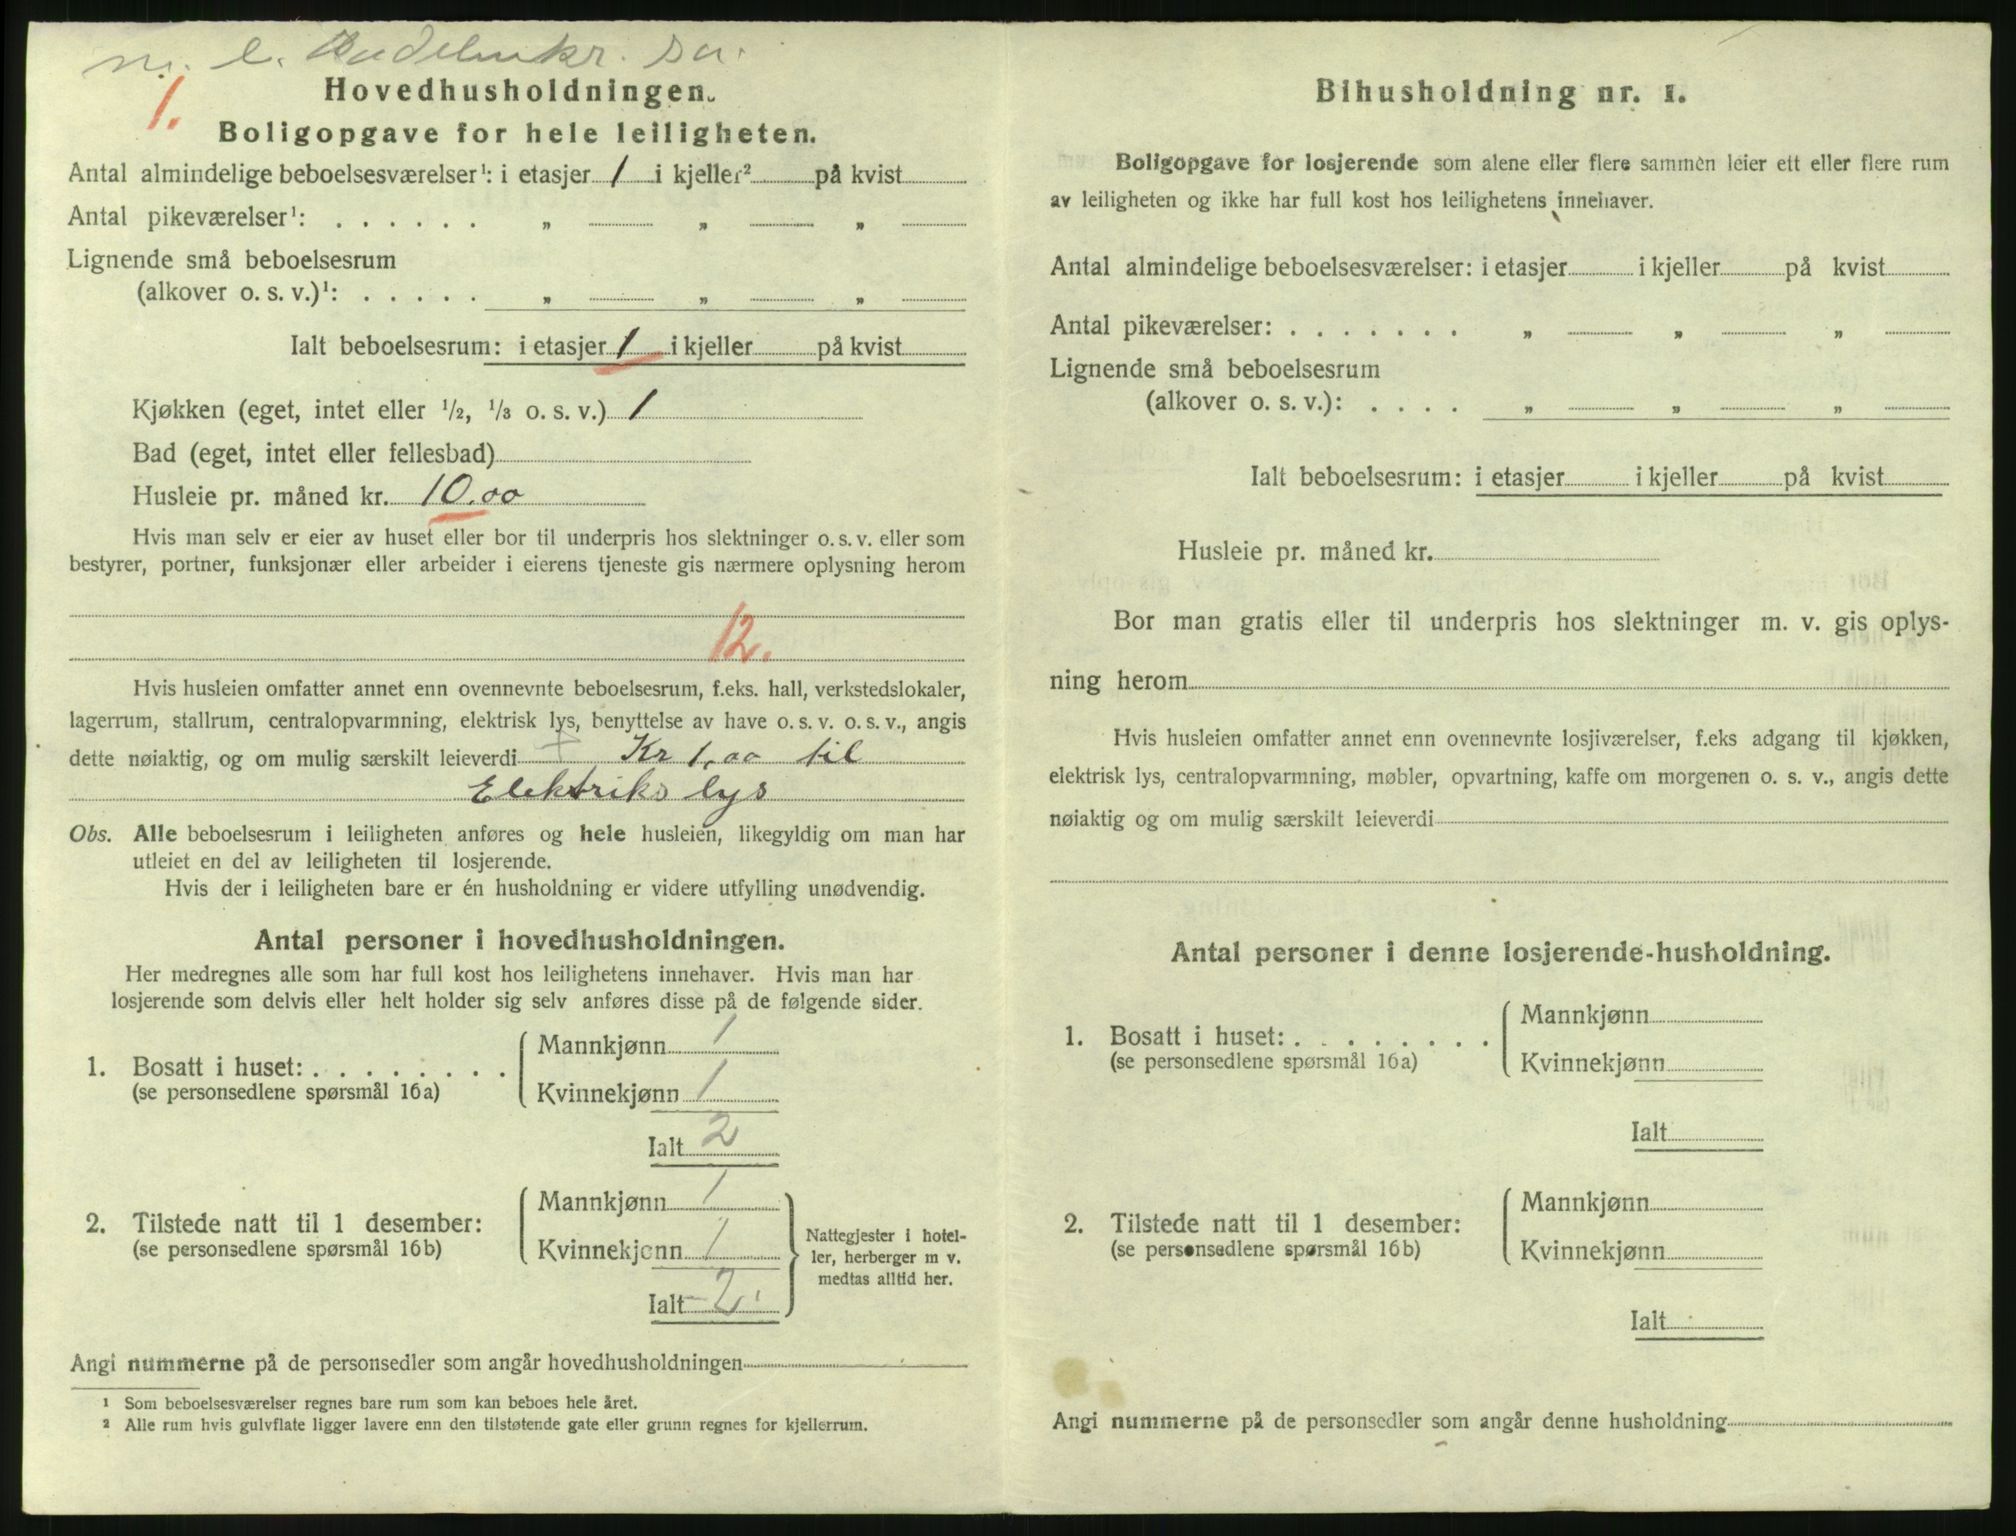 m. l.
1.
Hovedhusholdningen.
Boligopgave for hele leiligheten.
Antal almindelige beboelsesværelser¹: i etasjer 1 i kjeller² på kvist
Antal pikeværelser¹: . . . . . . „ „ „
Lignende små beboelsesrum
(alkover o. s. v.)¹: . . . . . „ „ „
Ialt beboelsesrum: i etasjer 1 i kjeller på kvist
Kjøkken (eget, intet eller ½, ⅓ o. s. v.) 1
Bad (eget, intet eller fellesbad)
Husleie pr. måned kr. 10.00
Hvis man selv er eier av huset eller bor til underpris hos slektninger o. s. v. eller som
bestyrer, portner, funksjonær eller arbeider i eierens tjeneste gis nærmere oplysning herom
12.
Hvis husleien omfatter annet enn ovennevnte beboelsesrum, f.eks. hall, verkstedslokaler,
lagerrum, stallrum, centralopvarmning, elektrisk lys, benyttelse av have o. s. v. o. s. v., angis
dette nøiaktig, og om mulig særskilt leieverdi + Kr 1.00 til
Elektriks lys
Obs. Alle beboelsesrum i leiligheten anføres og hele husleien, likegyldig om man har
utleiet en del av leiligheten til losjerende.
Hvis der i leiligheten bare er én husholdning er videre utfylling unødvendig.
Antal personer i hovedhusholdningen.
Her medregnes alle som har full kost hos leilighetens innehaver. Hvis man har
losjerende som delvis eller helt holder sig selv anføres disse på de følgende sider.
Mannkjønn 1
1. Bosatt i huset: . . . . . . . .
(se personsedlene spørsmål 16a)
Kvinnekjønn 1
Ialt 2
Mannkjønn 1
2. Tilstede natt til 1 desember:
(se personsedlene spørsmål 16b)
Kvinnekjønn 1
Ialt 2
Nattegjester i hotel-
ler, herberger m v.
medtas alltid her.
Angi nummerne på de personsedler som angår hovedhusholdningen
¹ Som beboelsesværelser regnes bare rum som kan beboes hele året.
² Alle rum hvis gulvflate ligger lavere enn den tilstøtende gate eller grunn regnes for kjellerrum.
Bihusholdning nr. 1.
Boligopgave for losjerende som alene eller flere sammen leier ett eller flere rum
av leiligheten og ikke har full kost hos leilighetens innehaver.
Antal almindelige beboelsesværelser: i etasjer i kjeller på kvist
Antal pikeværelser: . . . . . . . „ „ „
Lignende små beboelsesrum
(alkover o. s. v.): . . . . „ „ „
Ialt beboelsesrum: i etasjer i kjeller på kvist
Husleie pr. måned kr.
Bor man gratis eller til underpris hos slektninger m. v. gis oplys-
ning herom
Hvis husleien omfatter annet enn ovennevnte losjiværelser, f.eks adgang til kjøkken,
elektrisk lys, centralopvarmning, møbler, opvartning, kaffe om morgenen o. s. v., angis dette
nøiaktig og om mulig særskilt leieverdi
Antal personer i denne losjerende-husholdning.
Mannkjønn
1. Bosatt i huset: . . . . . . . .
(se personsedlene spørsmål 16a)
Kvinnekjønn
Ialt
Mannkjønn
2. Tilstede natt til 1 desember:
(se personsedlene spørsmål 16b)
Kvinnekjønn
Ialt
Angi nummerne på de personsedler som angår denne husholdning